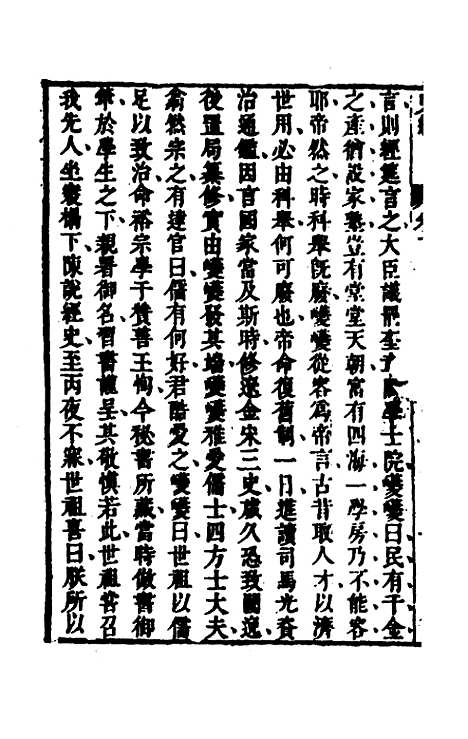 言則經筵言之大臣議罷奎
學士院夔夔曰民有千金
之產猶設家塾豈有堂堂天朝富有四海一學房乃不能容
耶帝然之時科舉既廢夔夔從容為帝言古昔取人才以濟
世用必由科舉何可廢也帝命復舊制一日進讀司馬光資
治通鑑因言國家當及斯時修遼金宋三史歲久恐致闕遺
後置局纂修實由夔夔發其端夔夔雅愛儒士四方士大夫
翕然宗之有達官曰儒有何好君酷愛之夔夔曰世祖以儒
足以致治命裕宗學于贊善王恂今秘書所藏當時倣書御
筆於學生之下親署御名習書謹呈其敬慎若此世祖嘗召
我先人坐寢榻下陳說經史至丙夜不寐世祖喜曰朕所以